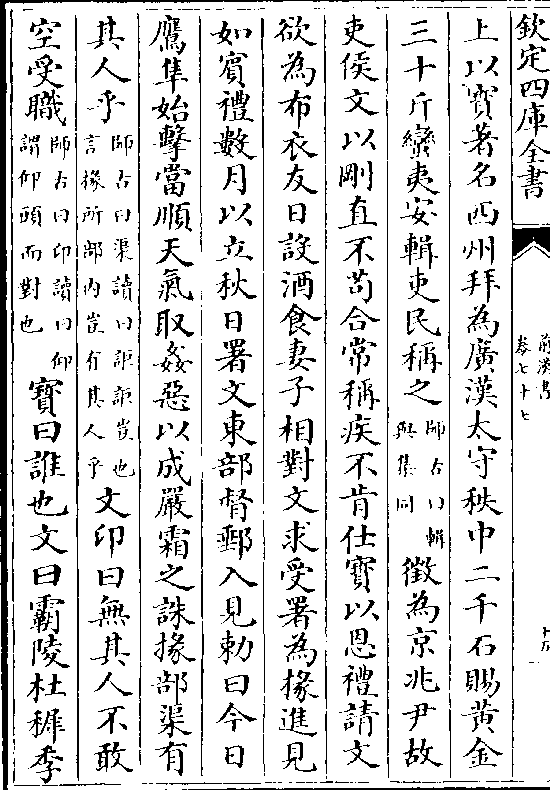 欽定四庫全書
前漢書
卷七十七
上以寶著名西州拜為廣漢太守秩中二千石賜黃金
三十斤蠻夷安輯吏民稱之師古曰輯與集同徵為京兆尹故
吏侯文以剛直不苟合常稱疾不肯仕寶以恩禮請文
欲為布衣友日設酒食妻子相對文求受署為掾進見
如賓禮數月以立秋日署文東部督郵入見勅曰今日
鷹隼始擊當順天氣取姦惡以成嚴霜之誅掾部渠有
其人乎師古曰渠讀曰詎詎豈也言掾所部內豈有其人乎文卬曰無其人不敢
空受職師古曰卬讀曰仰謂仰頭而對也寶曰誰也文曰霸陵杜穉季